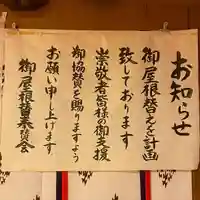 お知らせ
御屋根替えを計画
致しております
崇敬者皆様の御支援
御協賛を賜りますよう
お願い申し上げます
御屋根替奉賛会